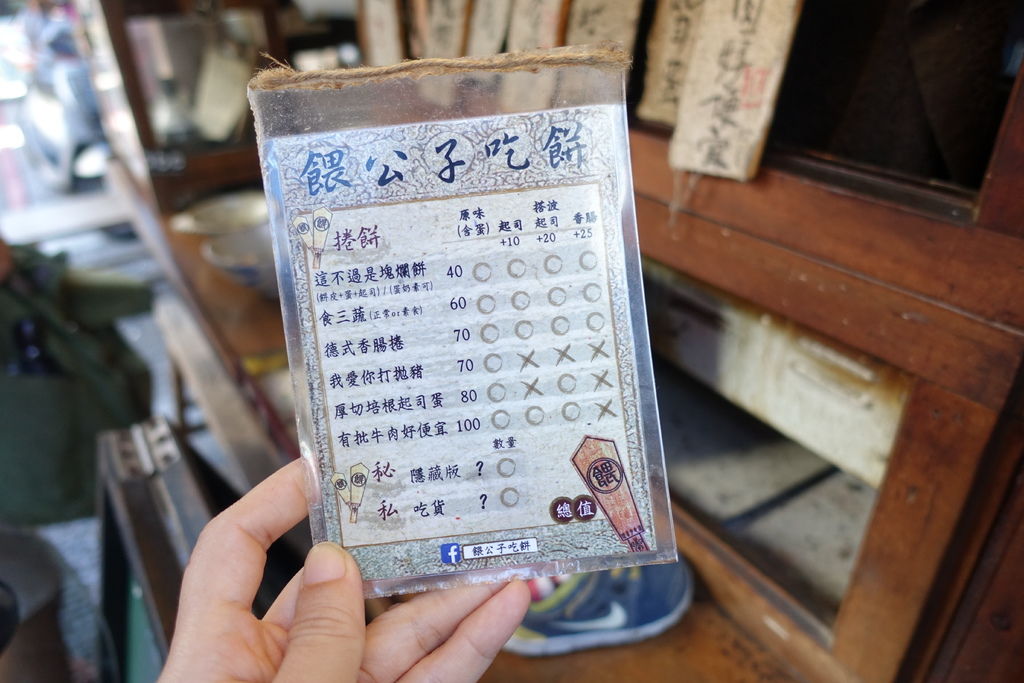 餵公子吃餅
捲餅 原味(含蛋) 起司+10 搭波起司+20 香腸+25
這不過是塊爛餅 40 ○ ○ ○ ○
(餅皮+蛋+起司)/(蛋奶素可)
食三蔬(正常or素食) 60 ○ ○ ○ ○
德式香腸捲 70 ○ ○ ○ ○
我愛你打拋豬 70 ○ × × ×
厚切培根起司蛋 80 ○ × ○ ×
有批牛肉好便宜 100 ○ ○ ○ ×
數量
秘 隱藏版 ? ○
私 吃貨 ? ○
總值
餵
f 餵公子吃餅